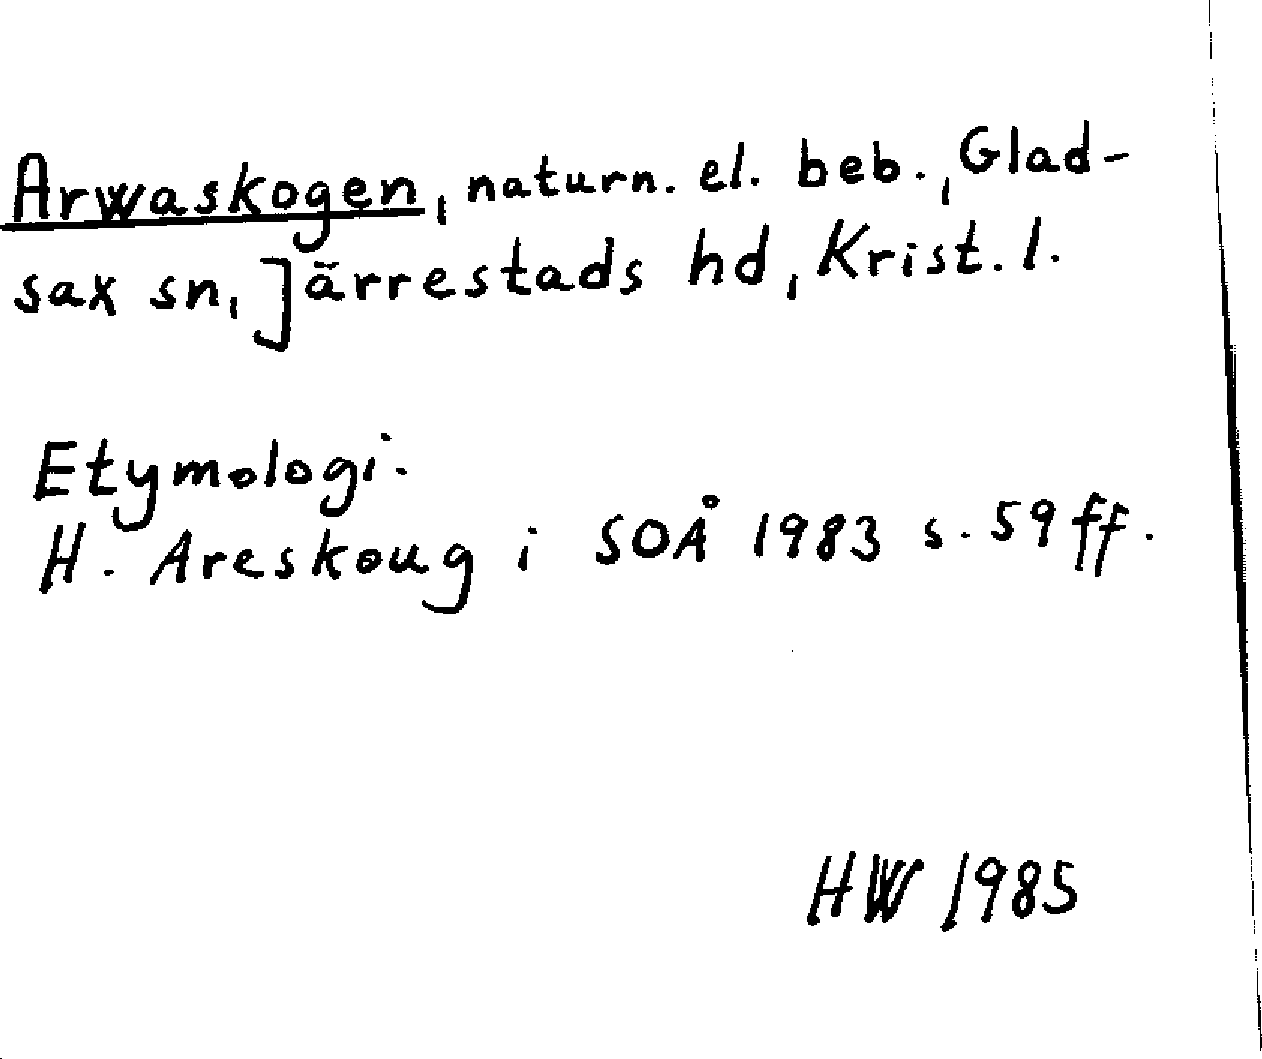 Arwaskogen, naturn. el. beb., Glad-
sax sn, Järrestads hd, Krist. l.
Etymologi.
H. Areskoug i SOÅ 1983 s. 59 ff.
HW 1985